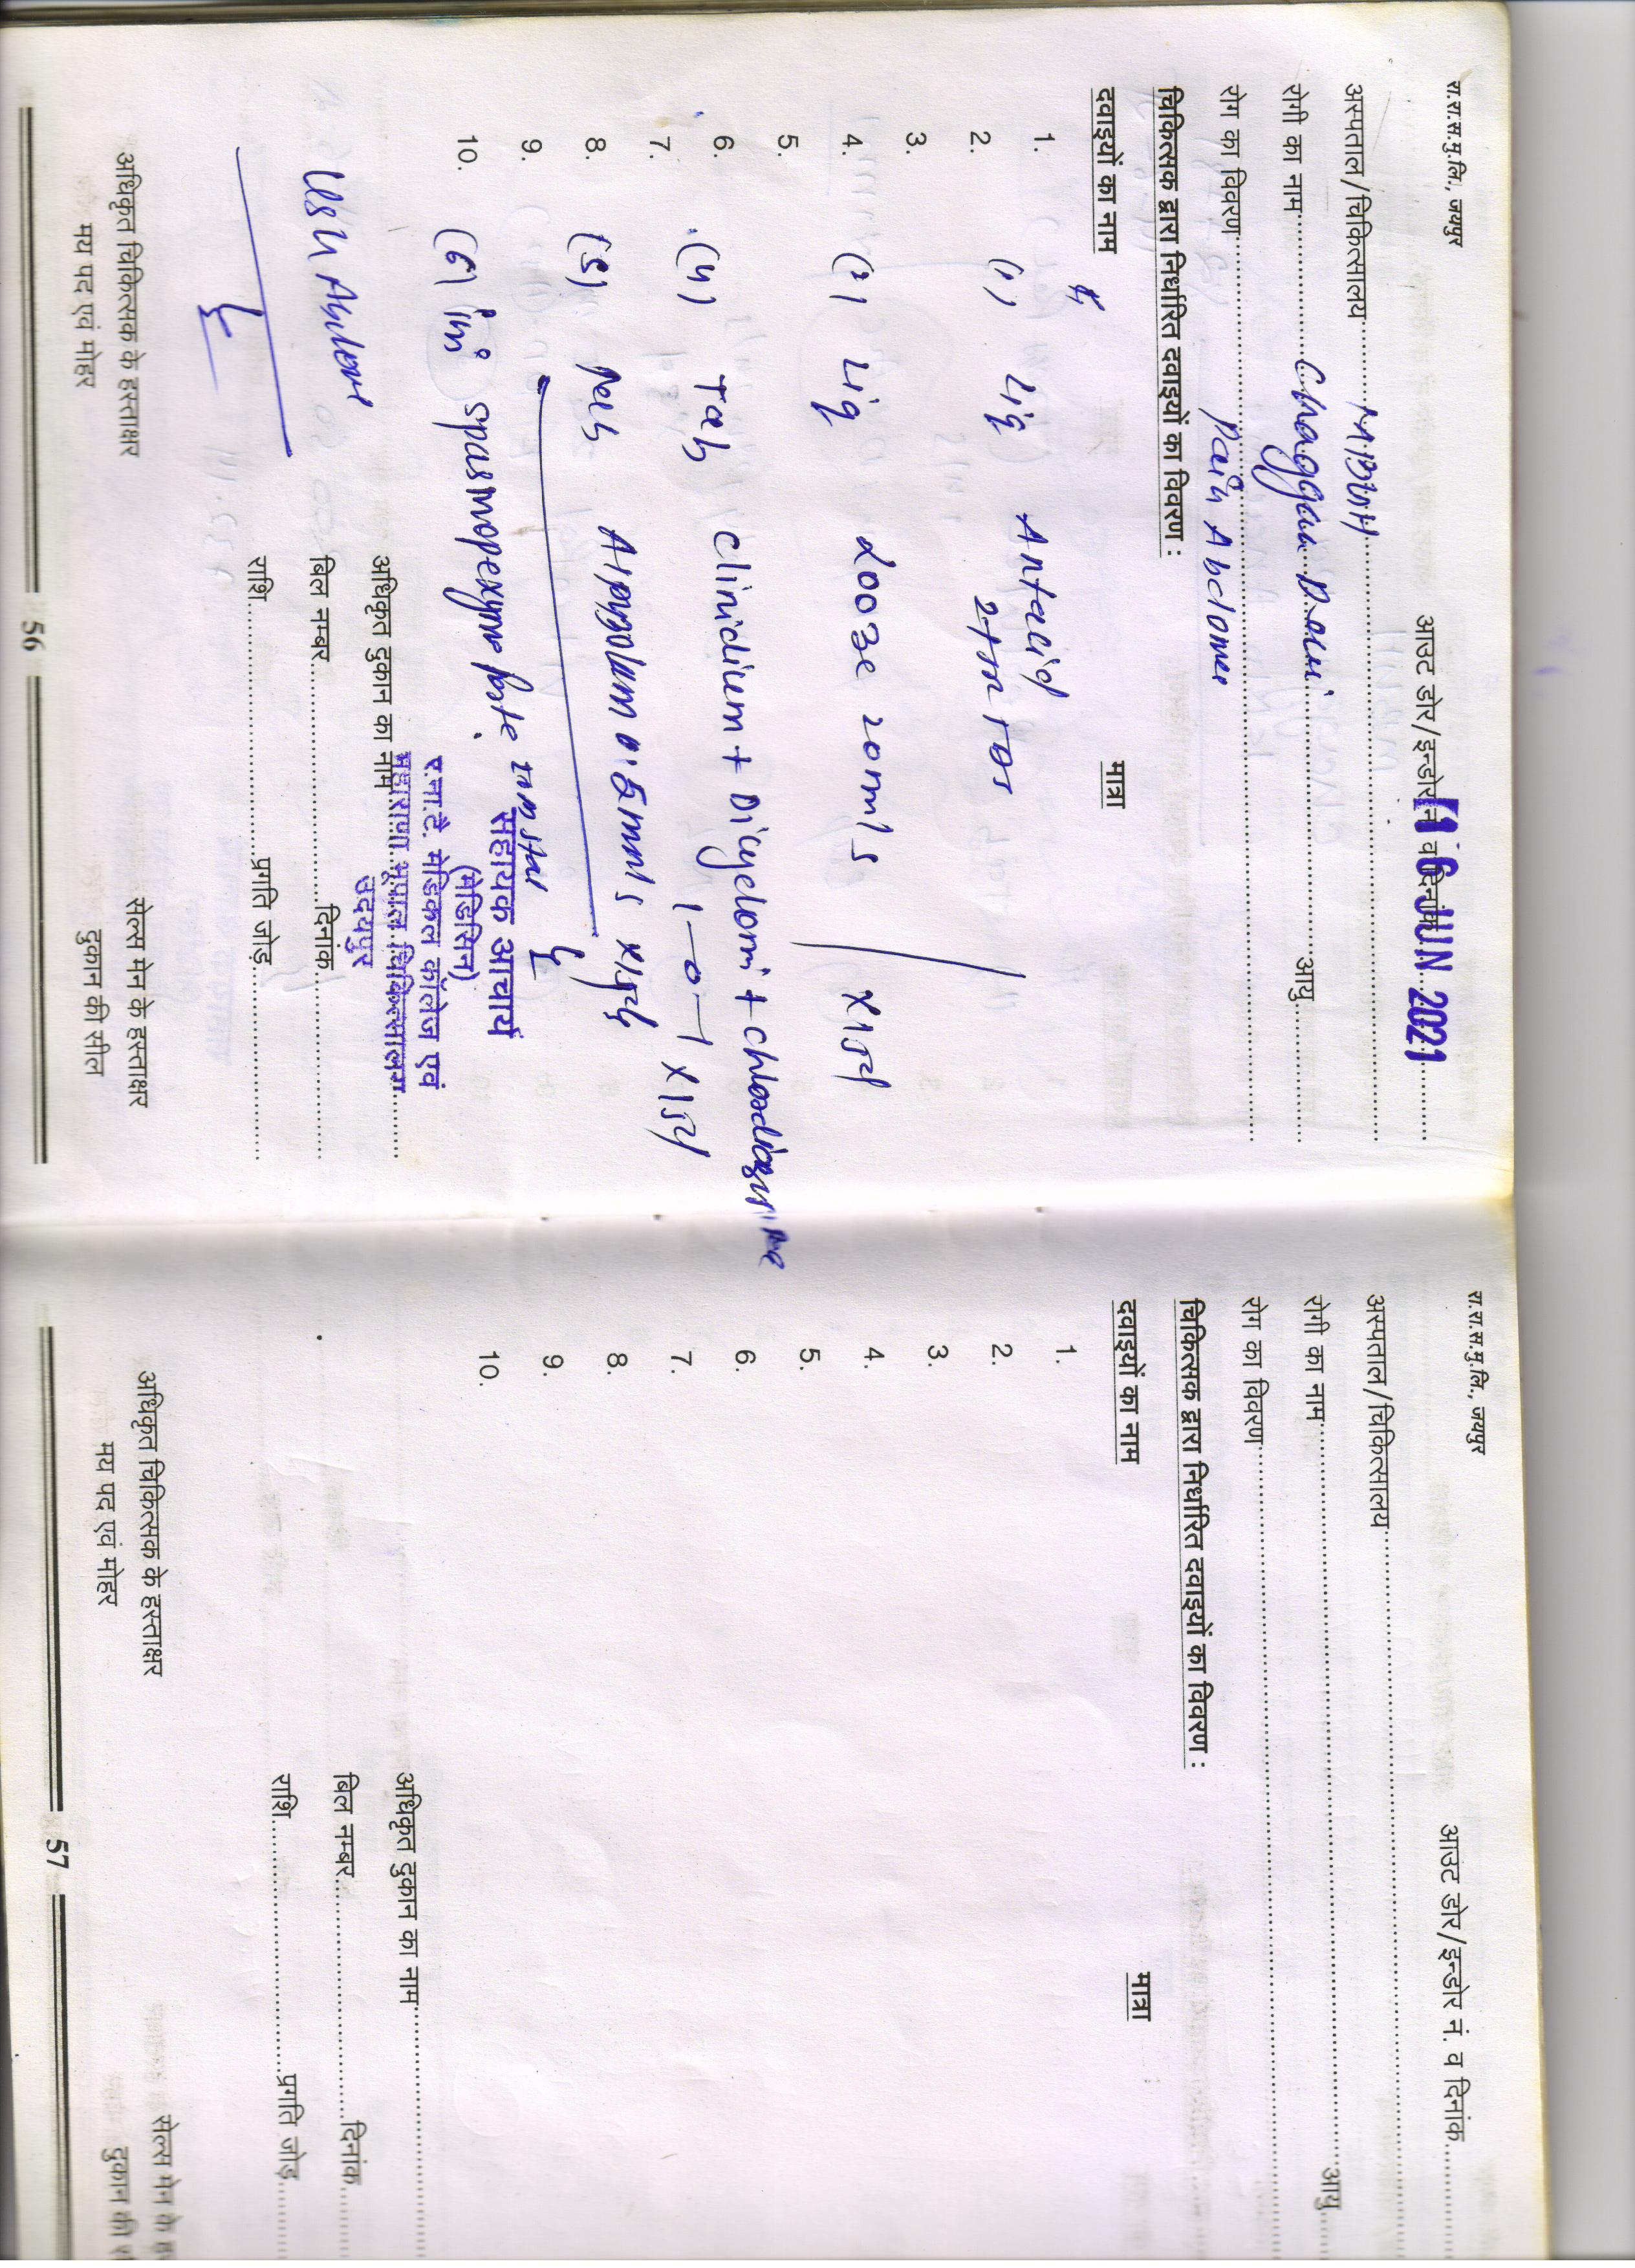 रा.रा.स.मु.लि., जयपुर
आउट डोर/इन्डोर नं. व दिनांक
16 JUN 2021
अस्पताल/चिकित्सालय MBGH
रोगी का नाम Chaggan आयु
रोग का विवरण Pain Abdomen
चिकित्सक द्वारा निर्धारित दवाइयों का विवरण :
दवाइयों का नाम मात्रा
1.
2.
3.
4.
5.
6.
7.
8.
9.
10.
(1) Liq Antacid
2 tsp TDS
(2) Liq Looze 20 mls x 15d
(4) Tab Clinidium + Dicyclomi + chlordiazu
1-0-1 x 15d
(5)
(6) Spasmo
USG Abdomen
सहायक आचार्य
(मेडिसिन)
र.ना.टे. मेडिकल कॉलेज एवं
महाराणा भूपाल चिकित्सालय
उदयपुर
अधिकृत दुकान का नाम
बिल नम्बर दिनांक
राशि प्रगति जोड़
अधिकृत चिकित्सक के हस्ताक्षर सेल्स मेन के हस्ताक्षर
मय पद एवं मोहर दुकान की सील
56
रा.रा.स.मु.लि., जयपुर
आउट डोर/इन्डोर नं. व दिनांक
अस्पताल/चिकित्सालय
रोगी का नाम आयु
रोग का विवरण
चिकित्सक द्वारा निर्धारित दवाइयों का विवरण :
दवाइयों का नाम मात्रा
1.
2.
3.
4.
5.
6.
7.
8.
9.
10.
अधिकृत दुकान का नाम
बिल नम्बर दिनांक
राशि प्रगति जोड़
अधिकृत चिकित्सक के हस्ताक्षर सेल्स मेन के
मय पद एवं मोहर दुकान की
57